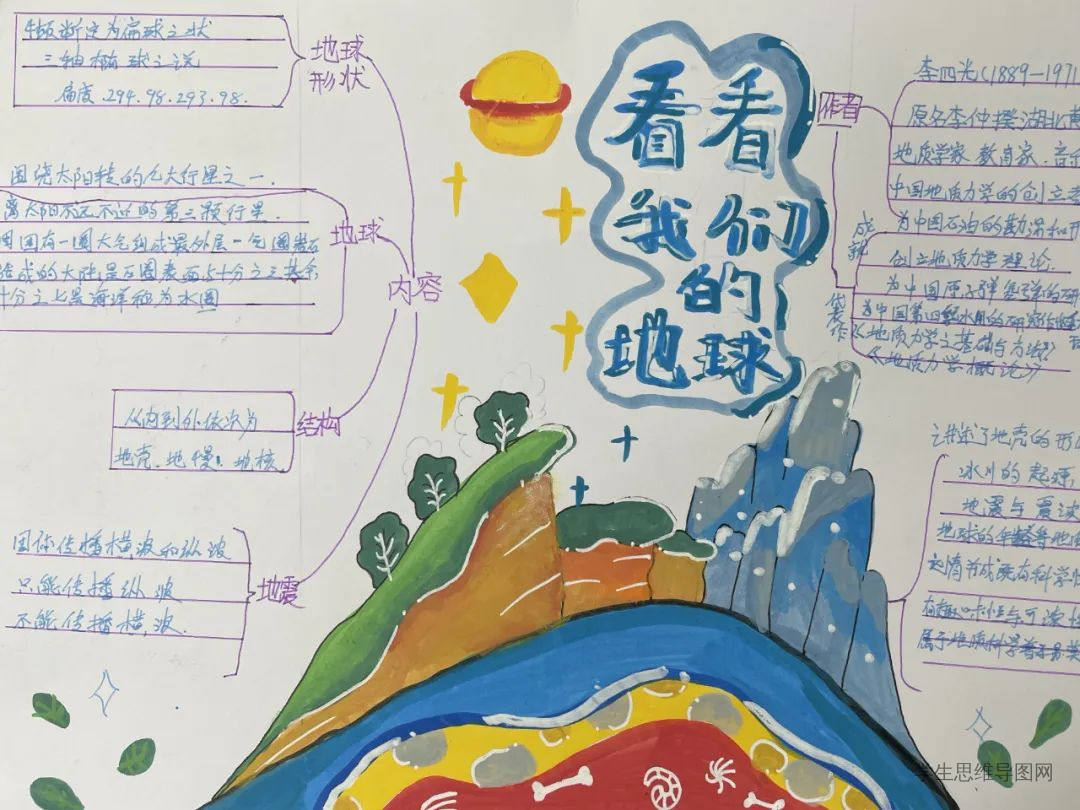 看看
我们
的
地球
内容
地球
形状
牛顿断定为扁球之状
三轴椭球之说
扁度.294.98.293.98.
地球
围绕太阳转的八大行星之一.
离太阳不远不近的第三颗行星.
周围有一圈大气组成最外层一气圈岩石
组成的大陆,岩石圈表面占十分之三其余
十分之七是海洋称为水圈
结构
从内到外依次为
地壳、地慢、地核
地震
固体传播横波和纵波
只能传播纵波
不能传播横波.
作者
李四光(1889—1971
原名李仲揆湖北黄
地质学家.教育家.音
中国地质力学的创立者
成就
为中国石油的勘探和开
创立地质力学理论.
为中国原子弹氢弹的研
为中国第四纪冰川的研究
代表作
《地质力学之基础与方法》
《地质力学概论》
讲述了地壳的形
冰川的起源,
地震与震波
地球的年龄等地
文情节成既有科学
有趣味性与可读性
属于地质科学著
学生思维导图网